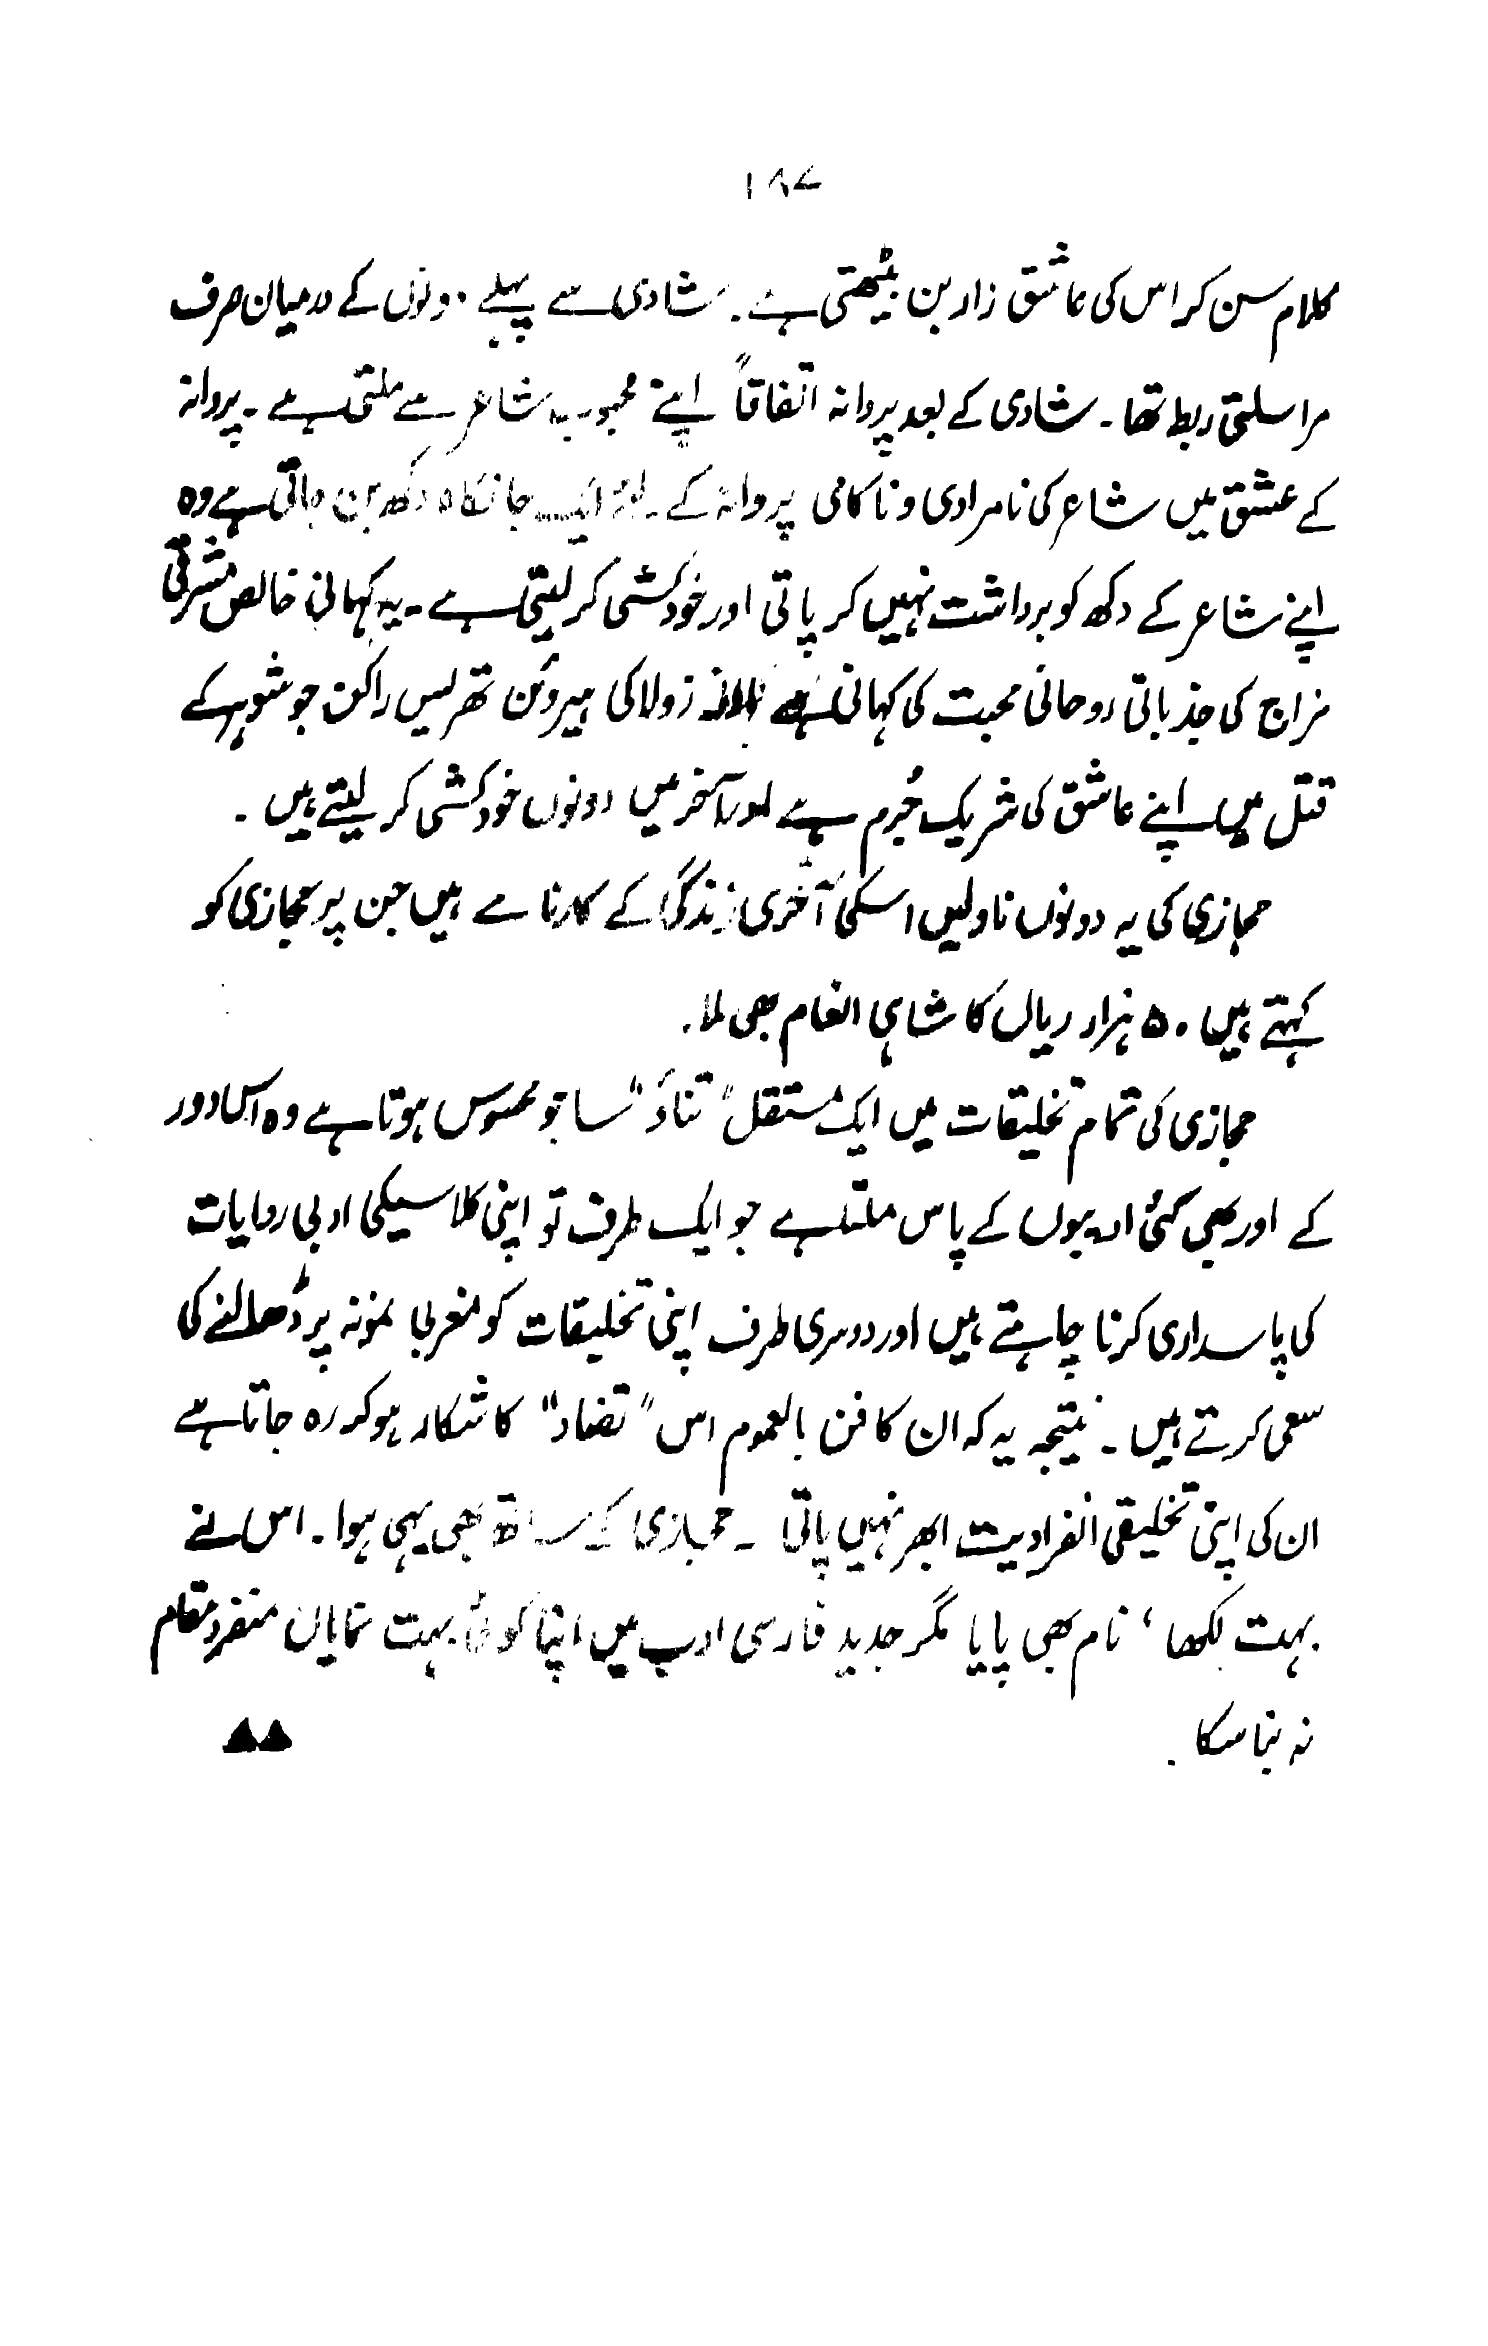 ۱۸۷
کلام سن کر اس کی عاشق زار بن بیٹھتی ہے۔ شادی سے پہلے دونوں کے درمیان صرف
مراسلتی ربط تھا۔ شادی کے بعد پروانہ اتفاقاً اپنے محبوب شاعر سے ملتی ہے۔ پروانہ
کے عشق میں شاعر کی نامرادی و ناکامی پروانہ کے لئے ایک جانکاہ دکھ بن جاتی ہے وہ
اپنے شاعر کے دکھ کو برداشت نہیں کر پاتی اور خودکشی کر لیتی ہے۔ یہ کہانی خالص مشرقی
مزاج کی جذباتی روحانی محبت کی کہانی ہے زولا کی ہیروئن تھریس راکن جو شوہر کے
قتل میں اپنے عاشق کی شریک جُرم ہے اور آخر میں دونوں خودکشی کر لیتے ہیں ۔
حجازی کی یہ دونوں ناولیں اسکی آخری زندگی کے کارنامے ہیں جن پر حجازی کو
کہتے ہیں ۵۰ ہزار ریال کا شاہی انعام بھی ملا۔
حجازی کی تمام تخلیقات میں ایک مستقل "تناؤ" سا جو محسوس ہوتا ہے وہ اس دور
کے اور بھی کئی ادیبوں کے پاس ملتا ہے جو ایک طرف تو اپنی کلاسیکی ادبی روایات
کی پاسداری کرنا چاہتے ہیں اور دوسری طرف اپنی تخلیقات کو مغربی نمونہ پر ڈھالنے کی
سعی کرتے ہیں ۔ نتیجہ یہ کہ ان کا فن بالعموم اس "تضاد" کا شکار ہو کر رہ جاتا ہے
ان کی اپنی تخلیقی انفرادیت ابھر نہیں پاتی ۔ حجازی کے ساتھ بھی یہی ہوا ۔ اس نے
بہت لکھا ، نام بھی پایا مگر جدید فارسی ادب میں اپنا کوئی بہت نمایاں منفرد مقام
نہ بنا سکا ۔